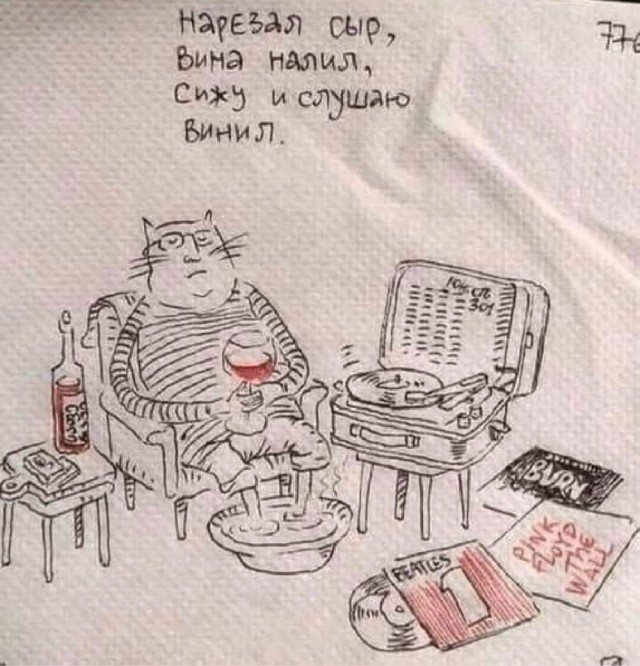 Нарезал сыр,
Вина налил,
Сижу и слушаю
винил.
301
BURN
PINK
FLOYD
THE
WALL
BEATLES
1